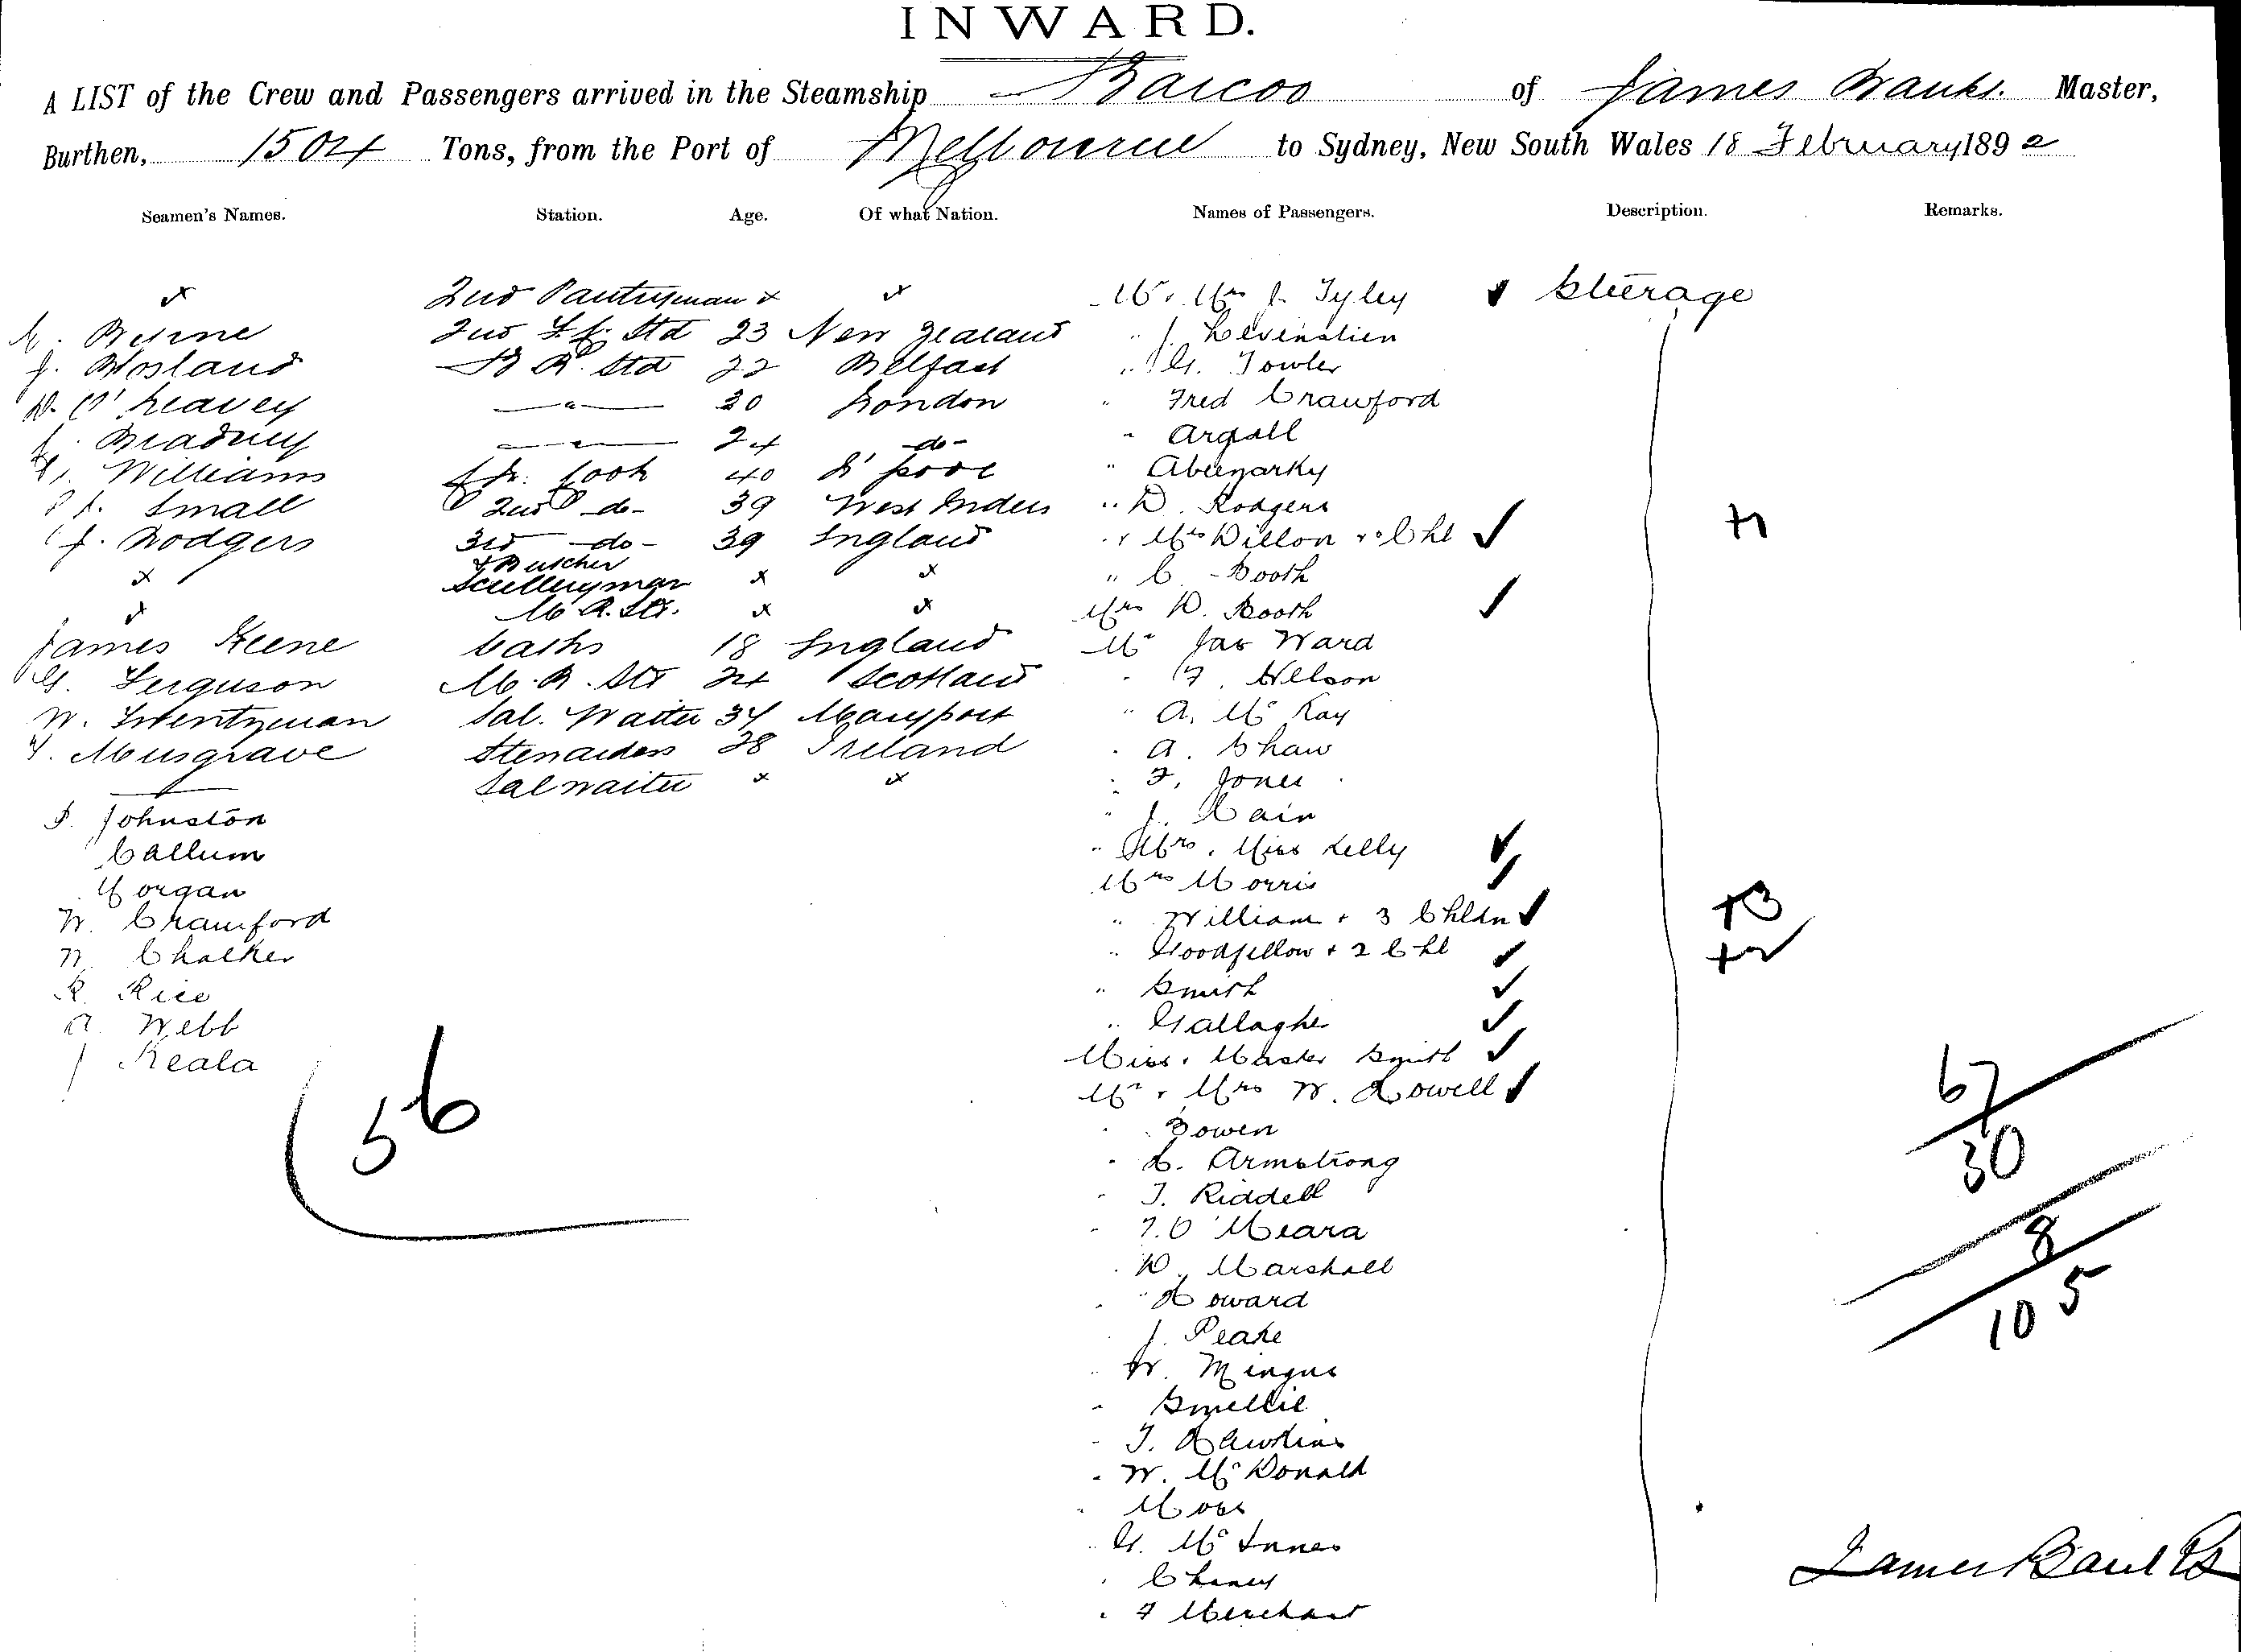 INWARD.
A LIST of the Crew and Passengers arrived in the Steamship Barcoo of James Banks. Master,
Burthen, 1504 Tons, from the Port of Melbourne to Sydney, New South Wales 18 February 1892
Seamen's Names. Station. Age. Of what Nation. Names of Passengers. Description. Remarks.
x 2nd Pantryman x x Mr & Mrs J. Tyley ✓ Steerage
Byrne 2nd Std 23 New Zealand " J. Levenstien
J. B R. Std 22 Belfast " G. Fowler
O'Leavey —"— 30 London " Fred Crawford
—"— 24 -do- " Argall
Williams Cook 40 L'pool "
Small 2nd -do- 39 West Indies " D. Rodgers
J. Rodgers 3rd -do- 39 England " & Mrs Dillon & Chl ✓ +1
x & Butcher
Sculleryman x x " C. Booth
x x x Mrs D. Booth ✓
James Keene baths 18 England Mr Jas Ward
G. Ferguson 24 Scotland " Nelson
W. Twentyman Sal. Waiter 34 Maryport " A. Mc Kay
Musgrave Stewardess 38 Ireland " A. Shaw
Sal waiter x x " F. Jones
Johnston " J. Cain
Callum " Mrs & Miss Kelly ✓
Morgan Mrs Morris ✓
W. Crawford " William & 3 Chldn ✓ +3
W. Chalker " Goodfellow & 2 Chl ✓ +2
R. Rice " Smith ✓
A. Webb " Gallagher ✓
J Keala Miss & Master Smith ✓
56 Mr & Mrs W. Howell ✓ 67
" Bowen
" Armstrong 30
" T. Riddell
" T. O'Meara 8
" D. Marshall
" Howard 105
" J. Peake
" W. Mingus
" Smellie
" T. Hawkins
" W. McDonald
" Moss
" G. McInnes
" James Banks
" F Merchant